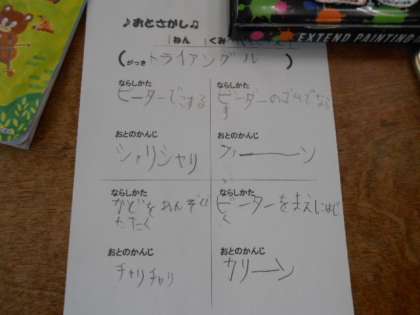 ♪おとさがし♫
ねん くみ
(がっき トライアングル )
ならしかた
ビーターでこする
ならしかた
ビーターのゴムでなら
す
おとのかんじ
シャリシャリ
おとのかんじ
ファーーン
ならしかた
かどをれんぞく
たたく
ならしかた
ビーターをまえに
おとのかんじ
チャリチャリ
おとのかんじ
カリーーン
EXTEND PAINTING